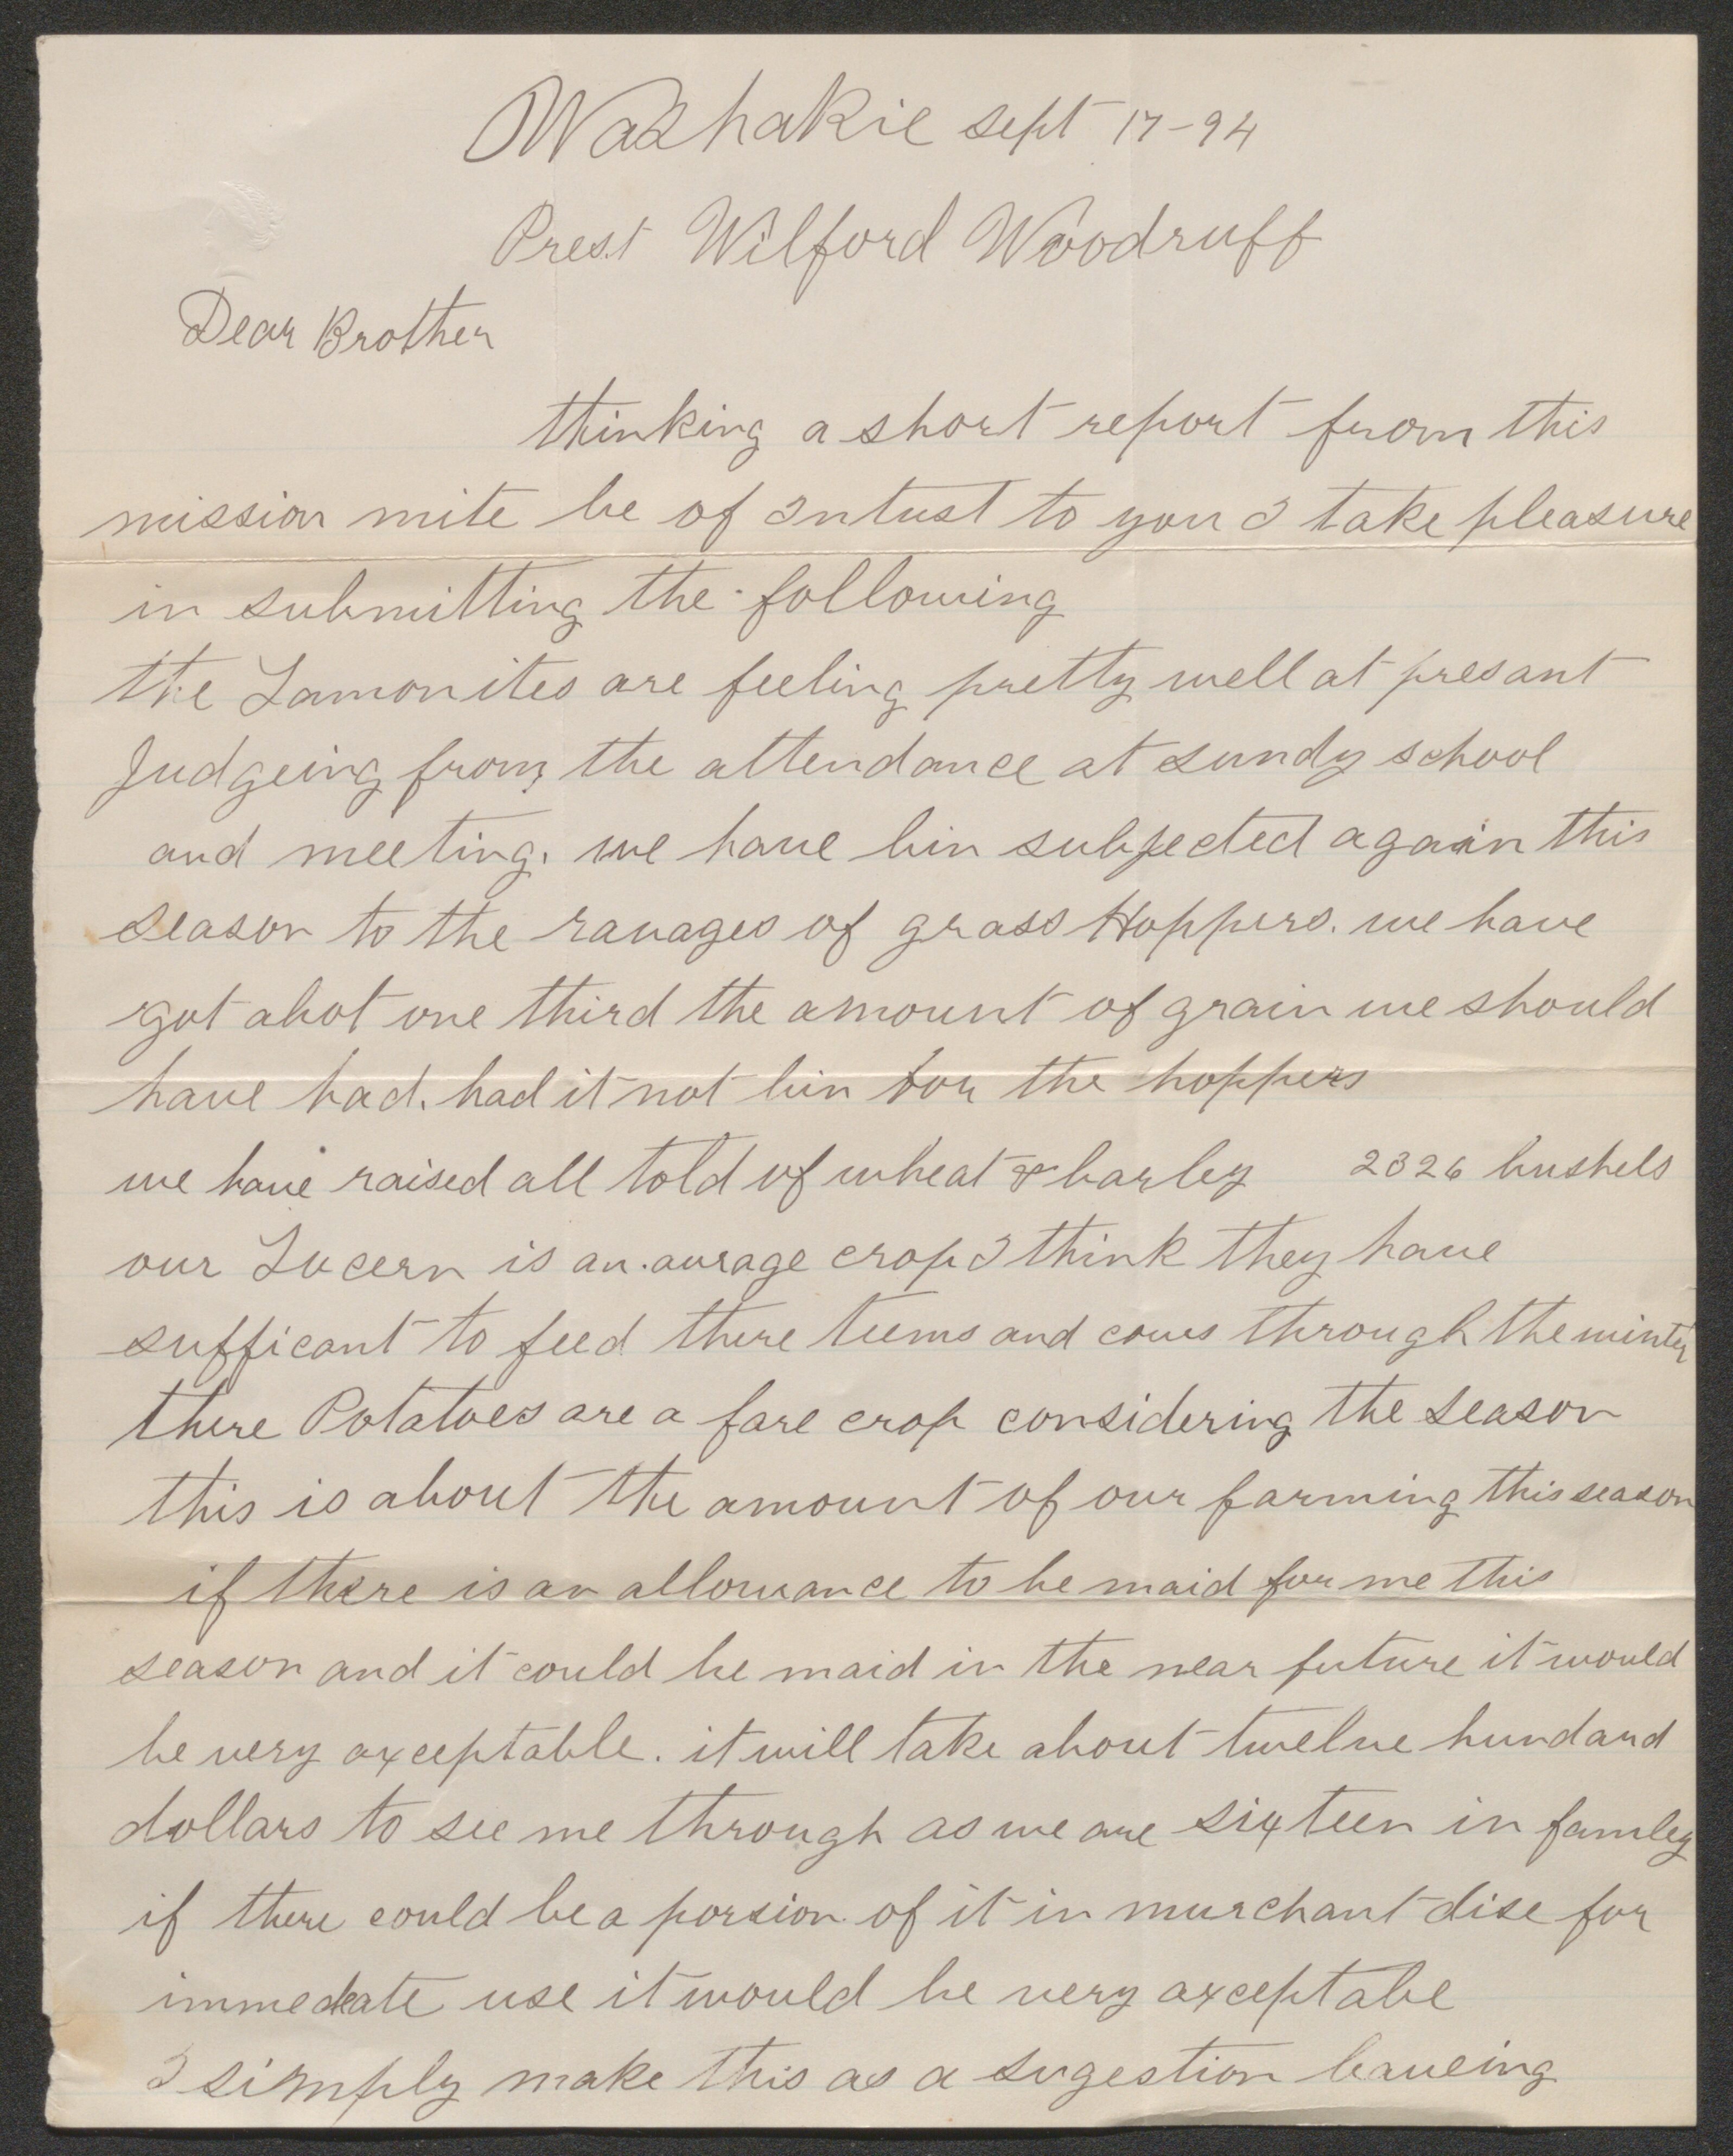 Washakie sept 17-94
Prest Wilford Woodruff
Dear Brother
thinking a short report from this
mission mite be of Intust to you I take pleasure
in submitting the following
the Lamonites are feeling pretty well at presant
Judgeing from the attendance at sundy school
and meeting. we have bin subjected again this
season to the ravages of grass Hoppers. we have
got abot one third the amount of grain we should
have had. had it not bin for the hoppers
we have raised all told of wheat & barley 2326 bushels
our Lucern is an avrage crop I think they have
sufficant to feed there teems and cows through the winter
there Potatoes are a fare crop considering the season
this is about the amount of our farming this season
if there is an allowance to be maid for me this
season and it could be maid in the near future it would
be very axceptable. it will take about twelve hundard
dollars to see me through as we are sixteen in famley
if there could be a porsion of it in murchant dise for
immedeate use it would be very axceptabe
I simply make this as a sugestion leaveing